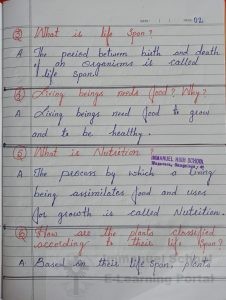 DATE: 02
Q What is life Span?
A The period between birth and death
of an organisms is called
life span.
Q Living beings needs food? Why?
A Living beings need food to grow
and to be healthy.
Q What is Nutrition?
IMMANUEL HIGH SCHOOL
A The process by which a living
being assimilates food and uses
for growth is called Nutrition.
Q How are the plants classified
according to their life Span?
A Based on their life span, plants
E-Learning Portal